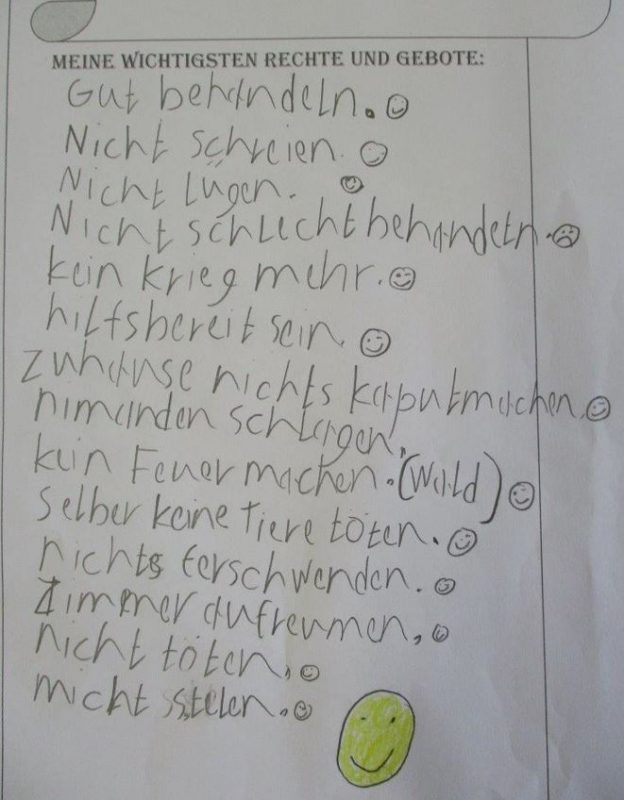 MEINE WICHTIGSTEN RECHTE UND GEBOTE:
Gut behandeln.
Nicht schreien.
Nicht Lügen.
Nicht schlecht behandeln.
kein krieg mehr.
hilfsbereit sein.
zuhause nichts kaputmachen.
nimanden schlagen.
kein Feuer machen. (Wald)
Selber keine Tiere töten.
nichts ferschwenden.
Zimmer aufreumen.
nicht töten.
nicht stelen.